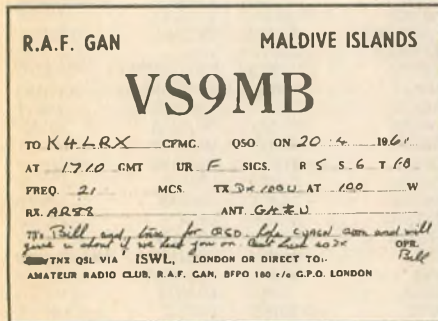 R.A.F. GAN MALDIVE ISLANDS
VS9MB
TO K4LRX CFMG. QSO ON 20.4 1961
AT 1710 GMT UR F SIGS. R 5 S 6 T
FREQ. 21 MCS. TX DX100U AT 100 W
RX. AR88 ANT. G4ZU
Tnx Bill, and for QSO. Hope CUAGN soon and will
give u shout if we hear you on. Best DX OPR.
TNX QSL VIA ISWL, LONDON OR DIRECT TO:- Bill
AMATEUR RADIO CLUB, R.A.F. GAN, BFPO 180 c/o G.P.O. LONDON